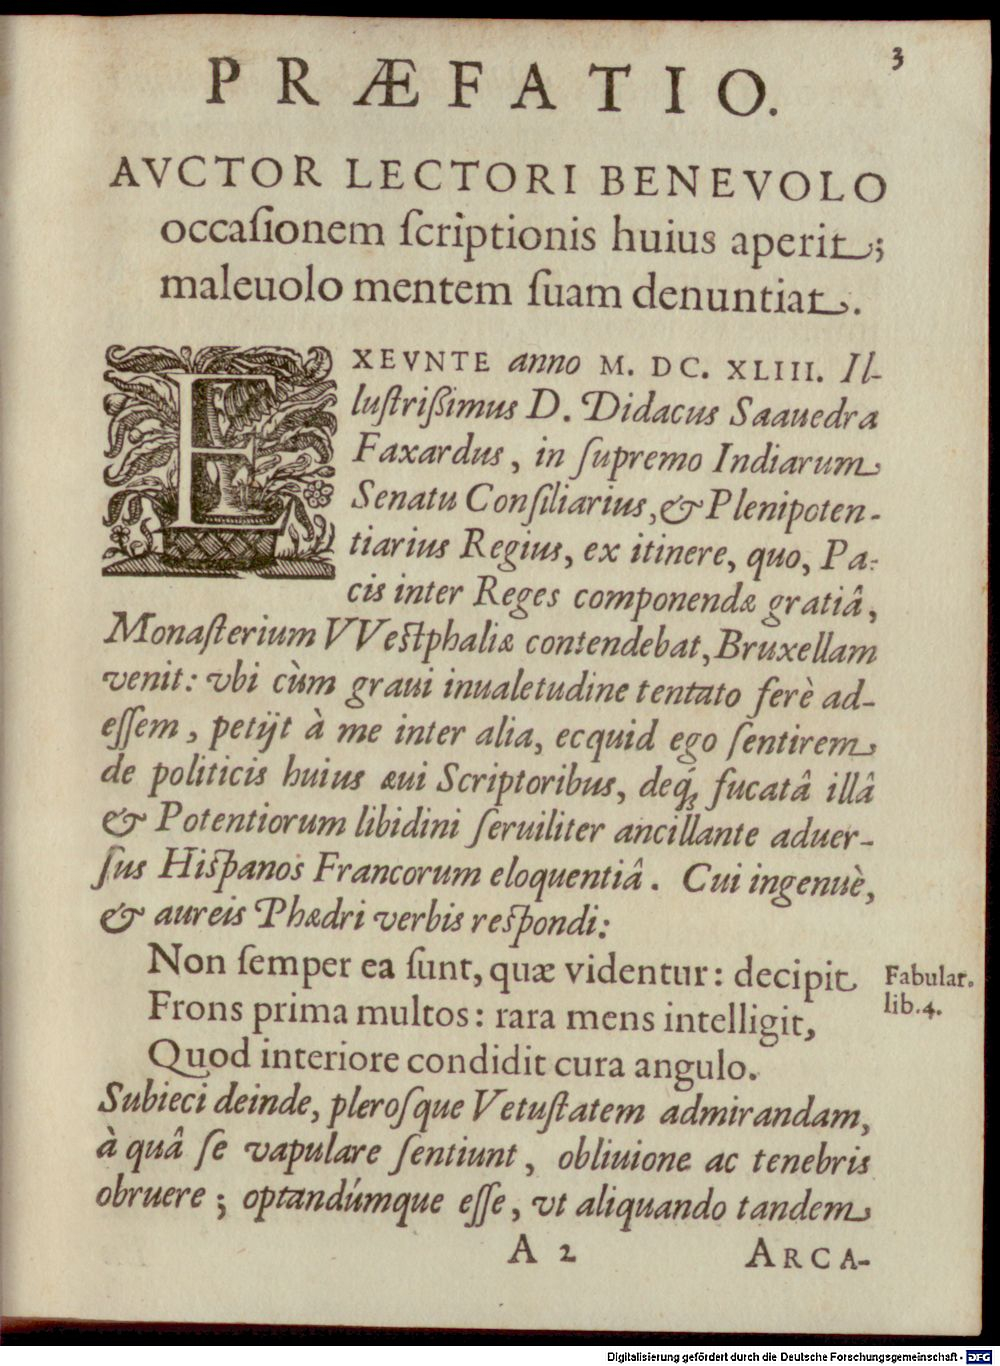 3
PRÆFATIO.
AVCTOR LECTORI BENEVOLO
occaſionem ſcriptionis huius aperit;
maleuolo mentem ſuam denuntiat.
EXEVNTE anno M. DC. XLIII. Il-
luſtriſſimus D. Didacus Saauedra
Faxardus, in ſupremo Indiarum
Senatu Conſiliarius, & Plenipoten-
tiarius Regius, ex itinere, quo, Pa-
cis inter Reges componendæ gratiâ,
Monaſterium VVeſtphaliæ contendebat, Bruxellam
venit: vbi cùm graui inualetudine tentato ferè ad-
eſſem, petijt à me inter alia, ecquid ego ſentirem
de politicis huius æui Scriptoribus, deq́; fucatâ illâ
& Potentiorum libidini ſeruiliter ancillante aduer-
ſus Hiſpanos Francorum eloquentiâ. Cui ingenuè,
& aureis Phædri verbis reſpondi:
Non ſemper ea ſunt, quæ videntur: decipit
Fabular.
lib.4.
Frons prima multos: rara mens intelligit,
Quod interiore condidit cura angulo.
Subieci deinde, pleroſque Vetuſtatem admirandam,
à quâ ſe vapulare ſentiunt, obliuione ac tenebris
obruere; optandúmque eſſe, vt aliquando tandem
A 2
ARCA-
Digitalisierung gefördert durch die Deutsche Forschungsgemeinschaft - DFG